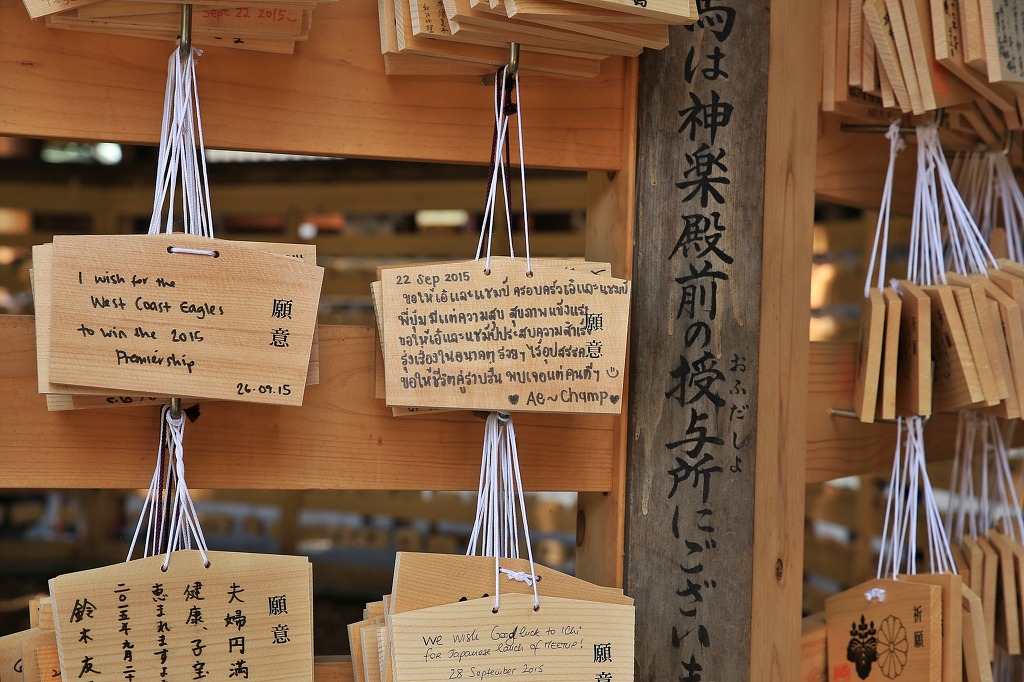 Sept 22 2015
I wish for the
West Coast Eagles
to win the 2015
Premiership
26.09.15
願意
22 Sep 2015
ขอให้เอ๋และแชมป์ ครอบครัวเอ๋และแชมป์
พี่ปุ้ม มีแต่ความสุข สุขภาพแข็งแรง
ขอให้เอ๋และแชมป์ประสบความสำเร็จ
รุ่งเรืองในอนาคต ไร้อุปสรรค
ขอให้ชีวิตคู่ราบรื่น พบเจอแต่คนดีๆ
♥ Ae ~ Champ ♥
願意
馬は神楽殿前の授与所にございま
おふだしよ
願意
夫婦円満
健康、子宝
恵まれますよ
二〇一五年九月二十
鈴木友
We wish Good luck to Ichi
for Japanese launch of MEETUP!
28 September 2015
願意
祈願